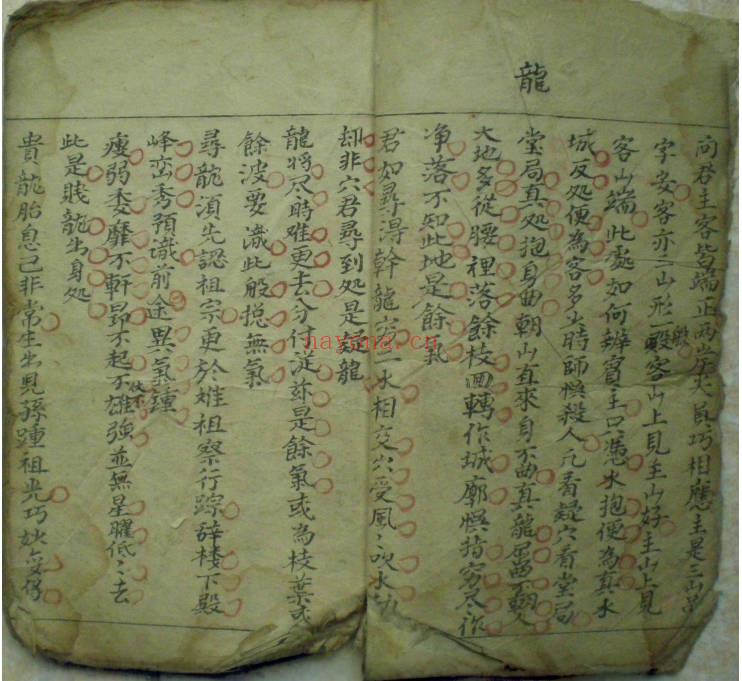 龍
向君主客皆端正兩岸尖員巧相應主是三山品
字安客亦三山形一般客山上見主山好主山上見
客山端此處如何辨賓主只憑水抱便為真水
城反処便為客多少時師悞殺人凡看疑穴看堂局
堂局真処抱身曲朝山直來身不曲真龍藏
大地多從腰裡落餘枝回轉作城廓悞指窮尽作
净落不知此地是餘氣
君如尋得幹龍窮二水相交穴受風〻吹水劫
却非穴君尋到処是疑龍
龍將尽時难更去分付従茲是餘氣或為枝葉或
餘波要識此般揔無氣
尋龍湏先認祖宗更於雉祖察行踪辞楼下殿
峰峦秀預識前途異氣鍾
瘦弱委靡不軒昂不起不雄強並無星曜低〻去
此是賎龍出身処
貴龍胎息已非常生出児孫踵祖光巧妙
nayona.cn